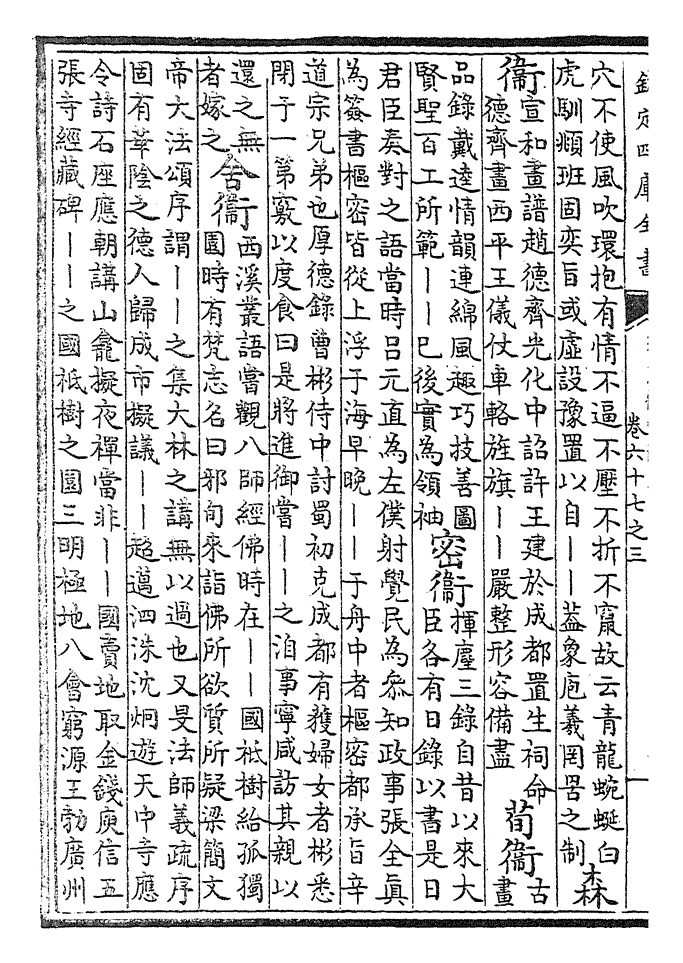 欽定四庫全書
卷六十七之三
一
穴不使風吹環抱有情不逼不壓不折不竄故云青龍蜿蜒白
虎馴頫班固奕旨或虛設豫置以自——葢象庖羲罔罟之制 森
衞 宣和畫譜趙德齊光化中詔許王建於成都置生祠命
德齊畫西平王儀仗車輅旌旗——嚴整形容備盡 荀衞 古畫
品錄戴逵情韻連綿風趣巧技善圖
賢聖百工所範——已後實為領袖 密衞 揮麈三錄自昔以來大
臣各有日錄以書是日
君臣奏對之語當時呂元直為左僕射覺民為叅知政事張全真
為簽書樞密皆從上浮于海早晚——于舟中者樞密都承旨辛
道宗兄弟也厚德錄曹彬侍中討蜀初克成都有獲婦女者彬悉
閉于一第竅以度食曰是將進御嘗——之洎事寧咸訪其親以
還之無
者嫁之 舍衞 西溪叢語嘗觀八師經佛時在——國祇樹給孤獨
園時有梵志名曰邪旬來詣佛所欲質所疑梁簡文
帝大法頌序謂——之集大林之講無以過也又旻法師義疏序
固有華陰之德人歸成市擬議——超邁泗洙沈炯遊天中寺應
令詩石座應朝講山龕擬夜禪當非——國賣地取金錢庾信五
張寺經藏碑——之國祇樹之園三明極地八會窮源王勃廣州